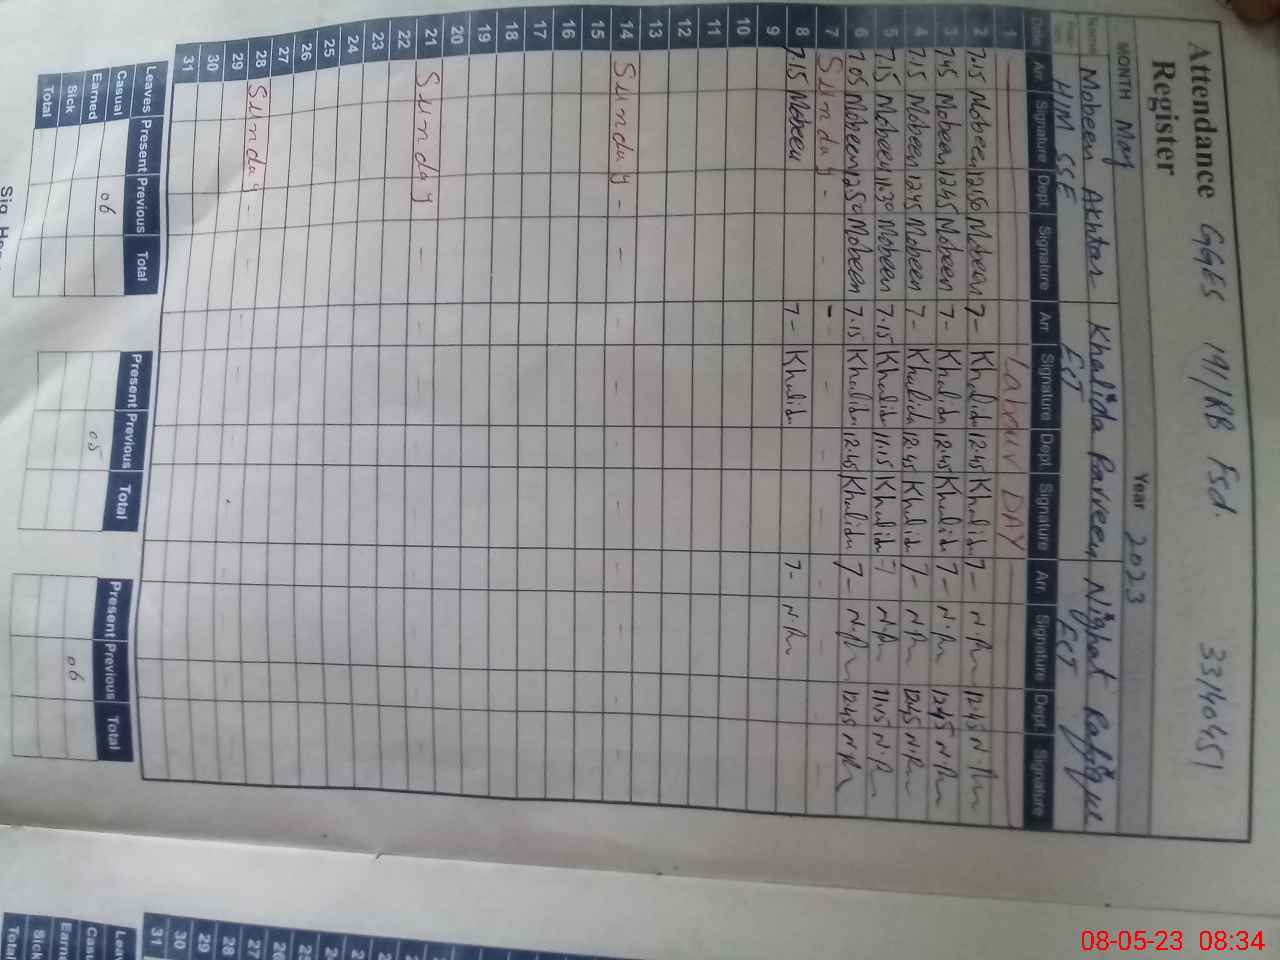 Attendance Register GGES 191/RB Fsd. 33140451
MONTH May Year 2023
Name Mobeen Akhtar Khalida Parveen Nighat Rafique
H/M SSE EST EST
Date Arr. Signature Dept. Signature Arr. Signature Dept. Signature Arr. Signature Dept. Signature
1 Labour DAY
2 7.15 Mobeen 12:50 Mobeen 7- Khalida 12:45 Khalida 7- N.Rn 12:45 N.Rn
3 7.45 Mobeen 12:45 Mobeen 7- Khalida 12:45 Khalida 7- N.Rn 12:45 N.Rn
4 7.15 Mobeen 12:45 Mobeen 7- Khalida 12:45 Khalida 7- N.Rn 12:45 N.Rn
5 7.15 Mobeen 11:30 Mobeen 7.15 Khalida 11:15 Khalida 7 N.Rn 11:15 N.Rn
6 7.05 Mobeen 12:50 Mobeen 7.15 Khalida 12:45 Khalida 7- N.Rn 12:45 N.Rn
7 Sunday - - - - - -
8 7.15 Mobeen 7- Khalida 7- N.Rn
9
10
11
12
13
14 Sunday - - - - - -
15
16
17
18
19
20
21 Sunday - - - -
22
23
24
25
26
27
28 Sunday - - - -
29
30
31
Leaves Present Previous Total Present Previous Total Present Previous Total
Casual 06 05 06
Earned
Sick
Total
31
30
29
28
27
26
25
Sick
Total
08-05-23 08:34